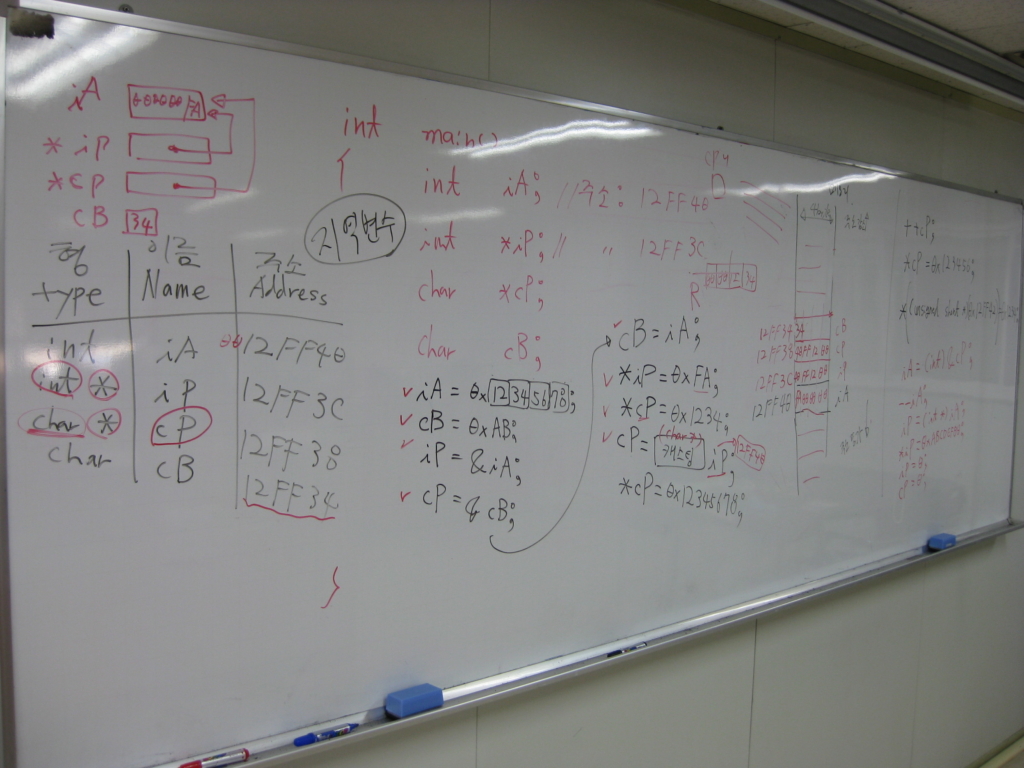 iA
* iP
* cP
cB 34
형 이름 주소
type Name Address
int iA 00 12FF40
int * iP 12FF3C
char * cP 12FF38
char cB 12FF34
지역변수
int main()
{
int iA; //주소: 12FF40
int *iP; // " 12FF3C
char *cP;
char cB;
iA = 0x12345678;
cB = 0xAB;
iP = &iA;
cP = &cB;
}
CPU
R
cB = iA;
*iP = 0xFA;
*cP = 0x1234;
cP = (char *) iP; 12FF40
*cP = 0x12345678;
12FF34 34 cB
12FF38 cP
12FF3C iP
12FF40 iA
++cP;
*cP = 0x123456;
iA = (int)&cP;
--iA;
iP = 0;
cP = 0;